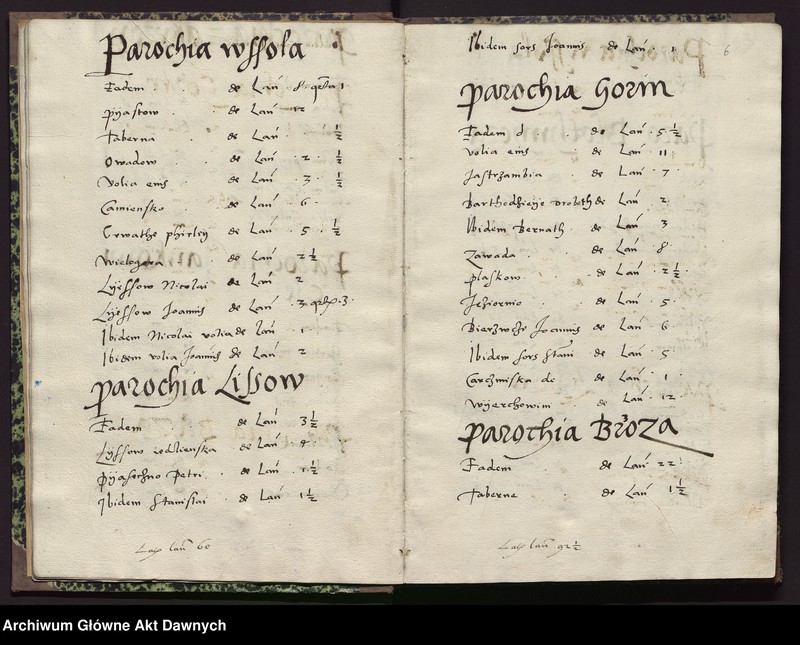 Parochia wssola
Eadem de Lan̄ 8 qrta 1
pyastow de Lan̄ 12
Taberna de Lan̄ ½
Owadow de Lan̄ 2 ½
Volia eius de Lan̄ 3 ½
Camiensko de Lan̄ 6
Crwathe phirley de Lan̄ 5 ½
Wielogora de Lan̄ 2 ½
Lyessow Nicolai de Lan̄ 2
Lyessow Joannis de Lan̄ 3 3
Ibidem Nicolai volia de Lan̄ 1
Ibidem volia Joannis de Lan̄ 2
parochia Lissow
Eadem de Lan̄ 3 ½
Lyssow de Lan̄
pyasechno petri de Lan̄ 1 ½
Ibidem Stanislai de Lan̄ 1 ½
lan̄ 60
6
Ibidem sors Joannis de Lan̄ 1
parochia Gorin
Eadem de Lan̄ 5 ½
Volia eius de Lan̄ 11
Jastrzambia de Lan̄ 7
Barthodzieye de Lan̄ 2
Ibidem Bernath de Lan̄ 3
Zawada de Lan̄ 8
plaskow de Lan̄ 2 ½
Jeziorno de Lan̄ 5
Joannis de Lan̄ 6
Ibidem sors Stani de Lan̄ 5
de Lan̄ 1
Wyerchowini de Lan̄ 12
parochia Brzoza
Eadem de Lan̄ 22
Taberne de Lan̄ 1 ½
lan̄ 92 ½
Archiwum Główne Akt Dawnych